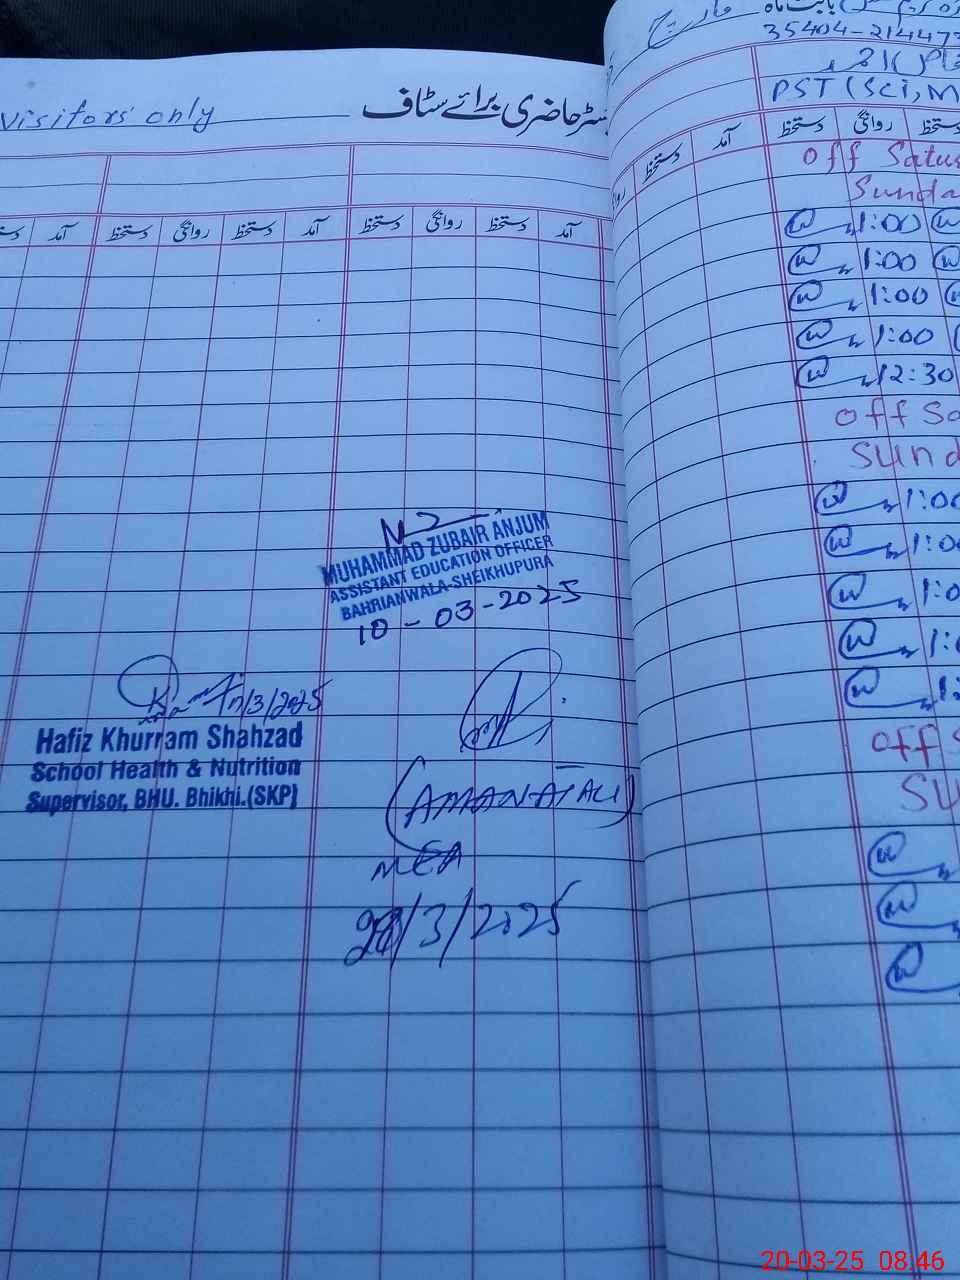 Visitors only
حاضری برائے سٹاف
آمد دستخط روانگی دستخط آمد دستخط روانگی دستخط آمد
MUHAMMAD ZUBAIR ANJUM
ASSISTANT EDUCATION OFFICER
BAHRIANWALA-SHEIKHUPURA
10-03-2025
/3/2025
Hafiz Khurram Shahzad
School Health & Nutrition
Supervisor, BHU. Bhikhi.(SKP)
(AMANAT ALI)
MEA
/3/2025
بابت ماہ مارچ
35404-214473
PST (Sci, M
دستخط آمد دستخط روانگی دستخط
off Satu
Sunda
1:00
1:00
1:00
1:00
12:30
off Sa
Sund
1:00
1:0
1:0
1:
1:
off S
Su
20-03-25 08:46